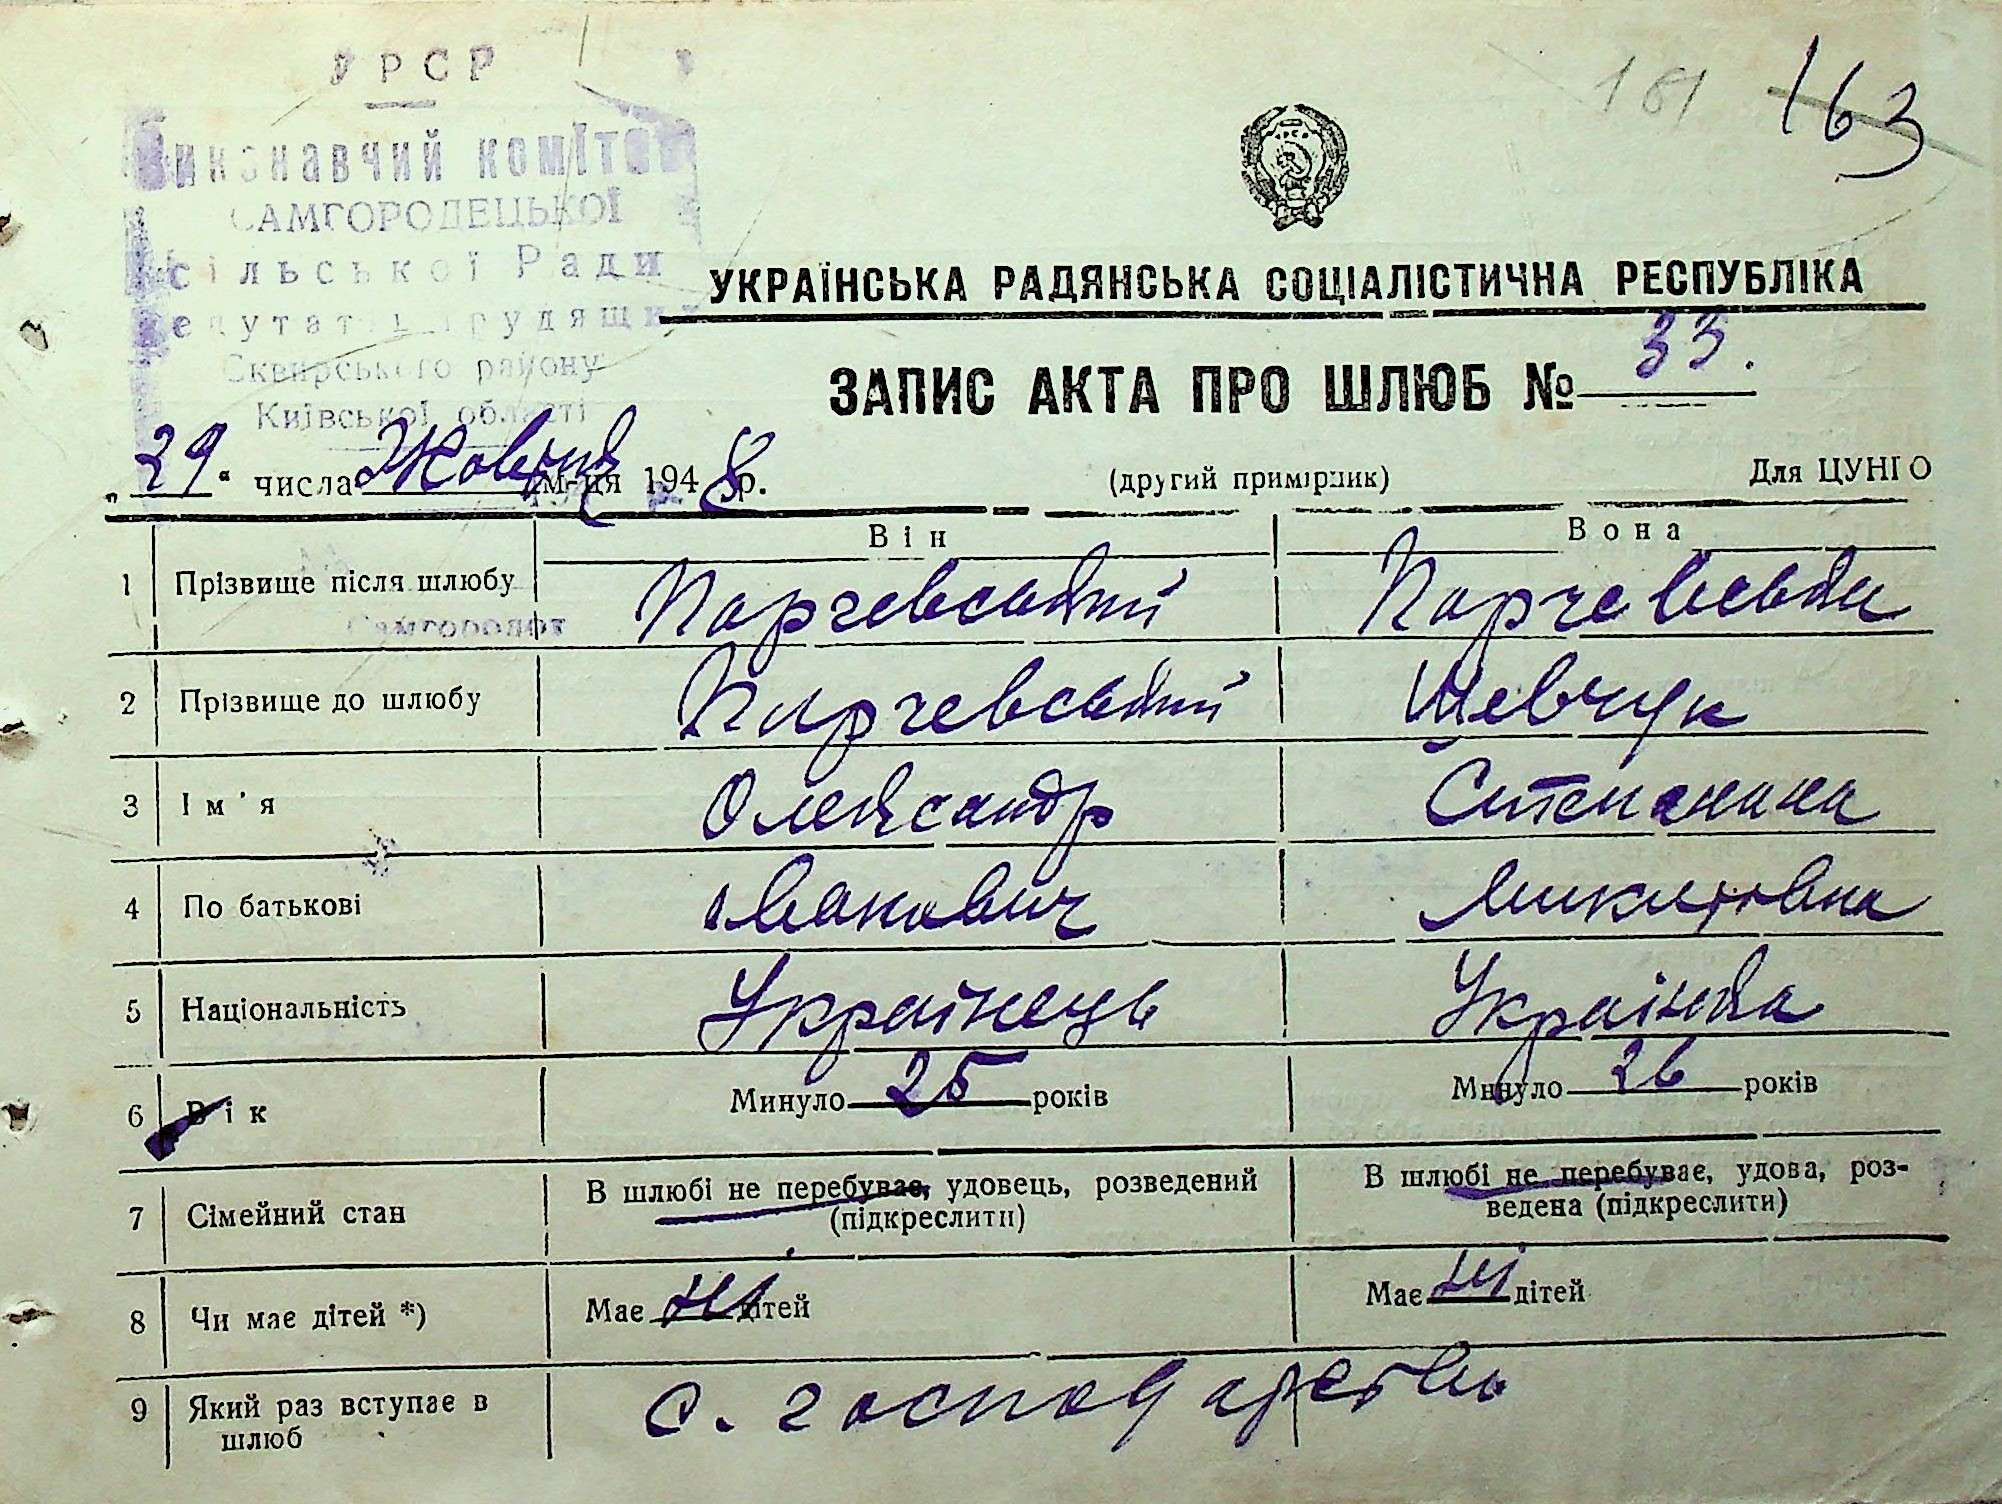 УРСР
Виконавчий коміте
САМГОРОДЕЦЬКОЇ
сільської Ради
депутатів трудящих
Сквирського району
Київської області
161 163
УКРАЇНСЬКА РАДЯНСЬКА СОЦІАЛІСТИЧНА РЕСПУБЛІКА
ЗАПИС АКТА ПРО ШЛЮБ № 33.
„29“ числа Жовтня м-ця 1948 р.
(другий примірник)
Для ЦУНГО
Він Вона
1 Прізвище після шлюбу Парчевський Парчевська
Самгородок
2 Прізвище до шлюбу Парчевський Шевчук
3 Ім'я Олександр Степанина
4 По батькові Іванович Микитовна
5 Національність Українець Українка
6 Вік Минуло 25 років Минуло 26 років
7 Сімейний стан В шлюбі не перебуває, удовець, розведений (підкреслити) В шлюбі не перебуває, удова, роз-
ведена (підкреслити)
8 Чи має дітей *) Має ні дітей Має ні дітей
9 Який раз вступає в шлюб с. господарство